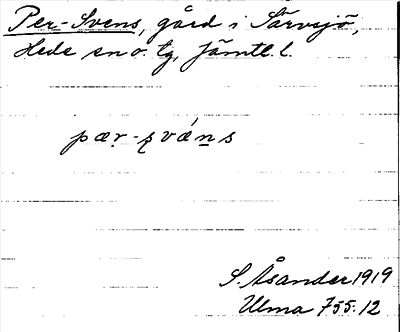 Per-Svens, gård i Särvsjö,
Hede sn o. tg, Jämtl. l.
pær-șvá́ns
S. Åsander 1919
Ulma 755:12